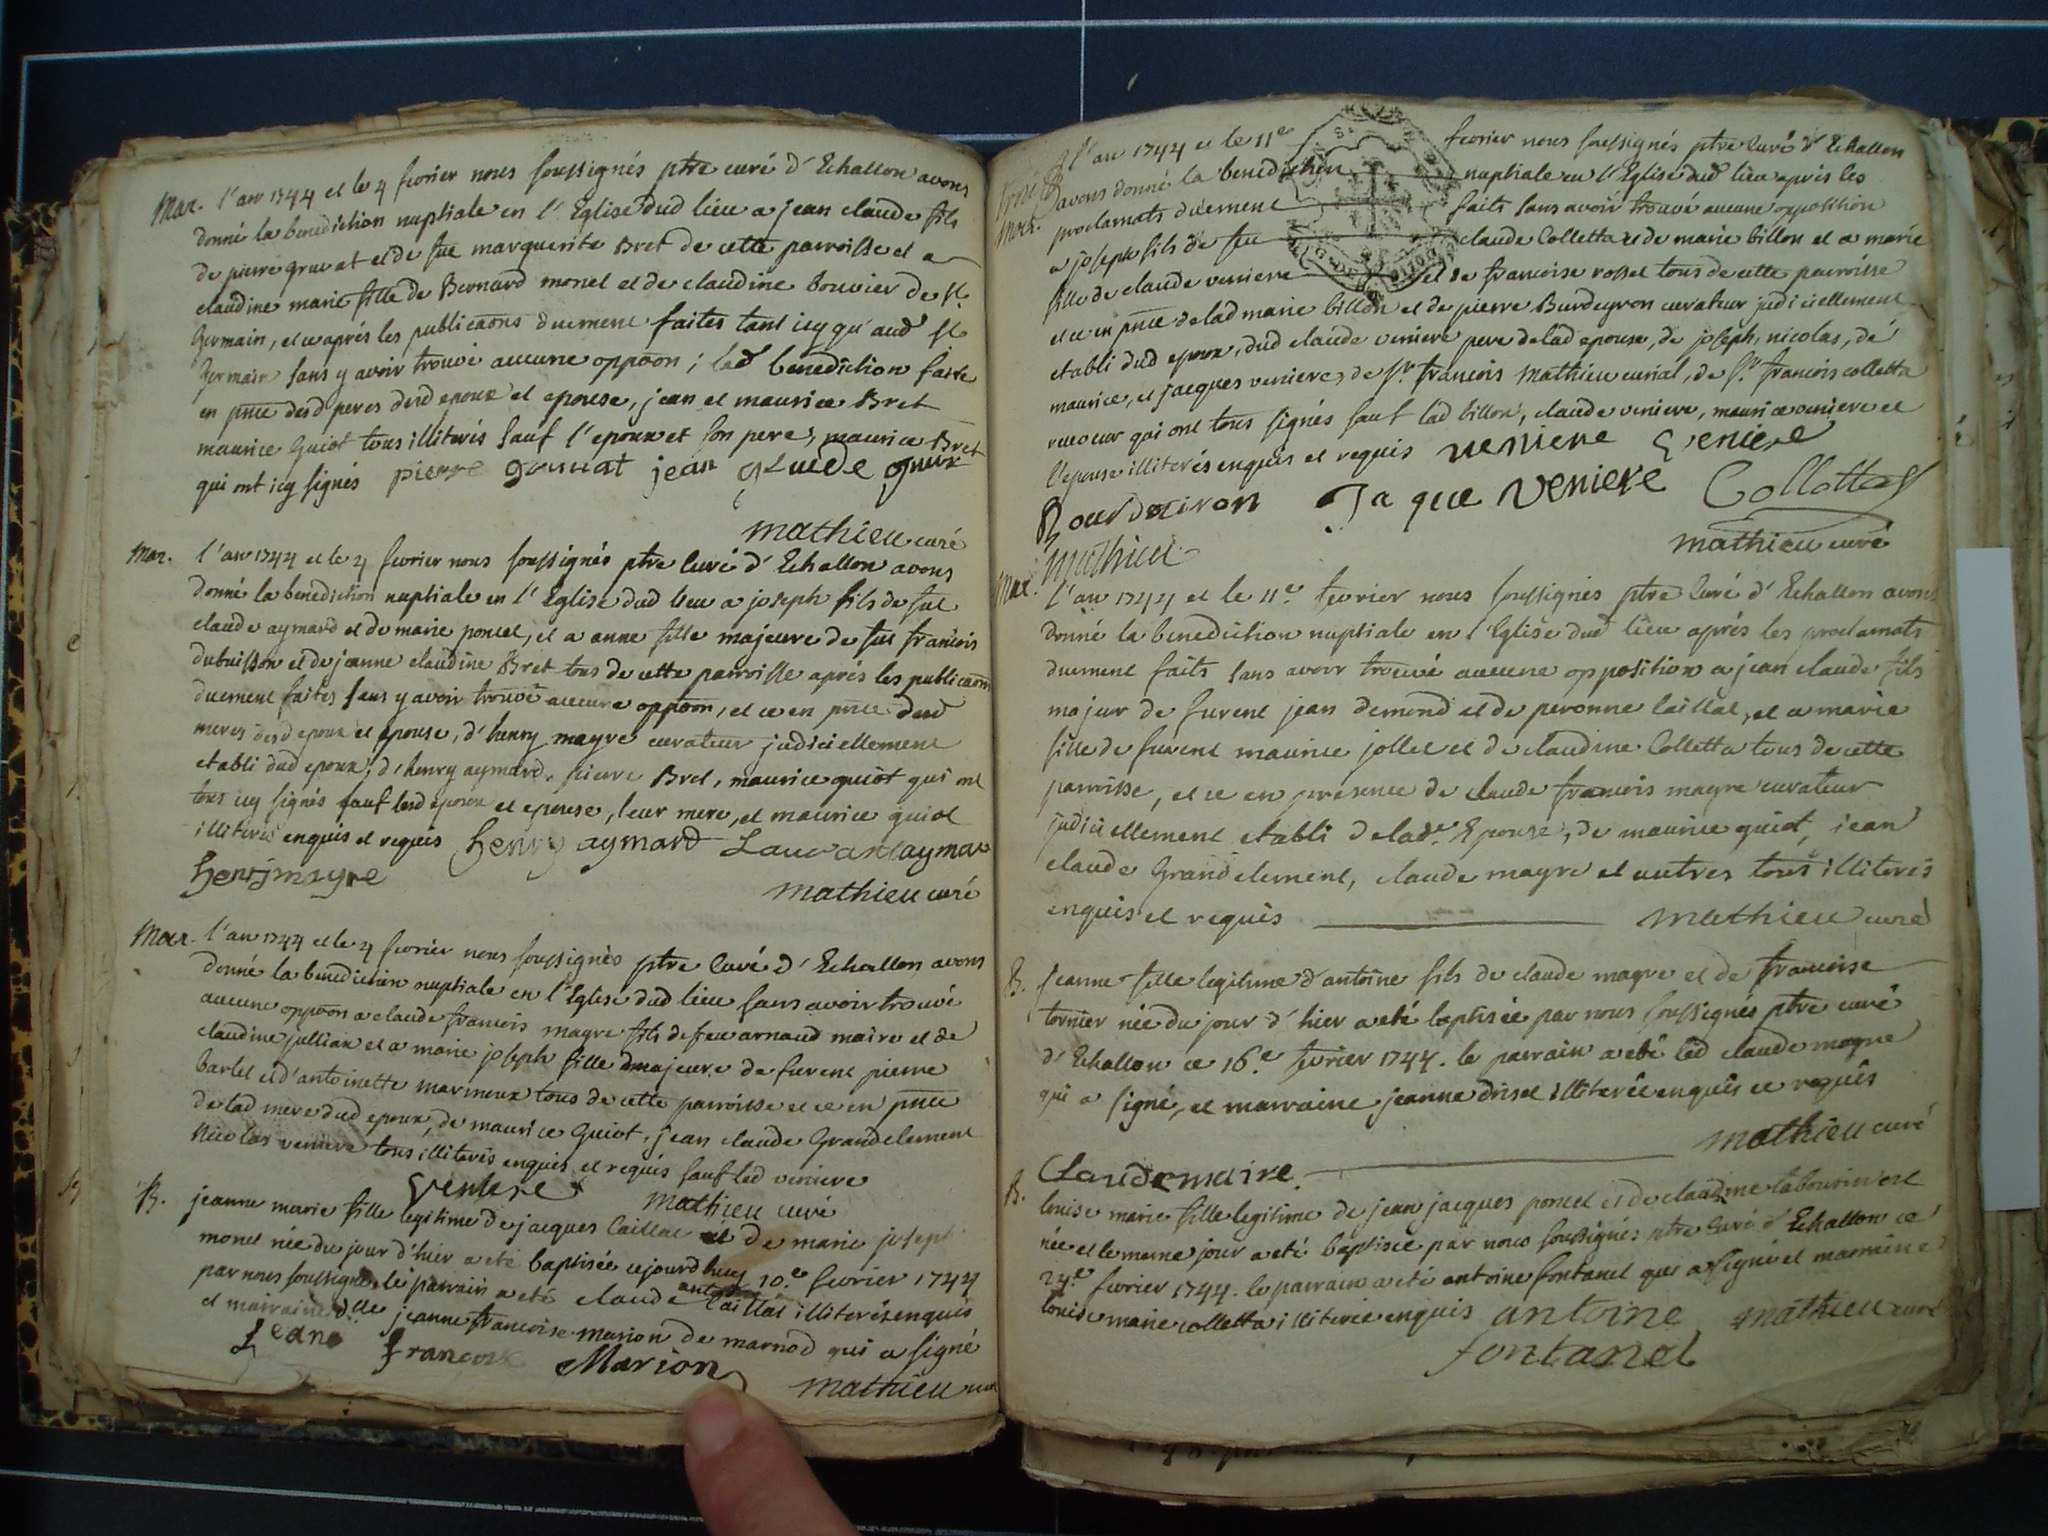 Mar. l'an 1744 et le 4 fevrier nous soussignés ptre curé d'Echallon avons
donné la benediction nuptiale en l'Eglise dud lieu a jean claude fils
de pierre gruat et de fue marguerite Bret de cette parroisse et a
claudine marie fille de Bernard monet et de claudine bouvier de st.
Germain, et ce aprés les publicaons duement faites tant icy qu'aud st
Germain sans y avoir trouvé aucune oppoon; lad benediction faite
en pnce desd peres desd epoux et epouse, jean et maurice Bret
maurice Guiot tous illiterés sauf l'epoux et son pere, maurice Bret
qui ont icy signés pierre jean
mathieu curé
Mar. l'an 1744 et le 4 fevrier nous soussignés ptre curé d'Echallon avons
donné la benediction nuptiale en l'Eglise dud lieu a joseph fils de fut
claude aymard et de marie poncet, et a anne fille majeure de fut francois
dubuisson et de jeanne claudine Bret tous de cette parroisse aprés les publicaons
duement faites sans y avoir trouvé aucune oppoon, et ce en pnce desd
meres desd epoux et epouse, d'henry mayre curateur judiciellement
etabli dud epoux, d'henry aymard, pierre Bret, maurice guiot qui ont
tous icy signés sauf lesd epoux et epouse, leur mere, et maurice guiot
illiterés enquis et requis henry aymard
henrj mayre
mathieu curé
Mar. l'an 1744 et le 4 fevrier nous soussignés ptre curé d'Echallon avons
donné la benediction nuptiale en l'Eglise dud lieu sans avoir trouvé
aucune oppoon a claude francois mayre fils de feu arnaud maire et de
claudine jullian et a marie joseph fille majeure de furent pierre
barlet et d'antoinette marmoux tous de cette parroisse et ce en pnce
de lad mere dud epoux, de maurice Guiot, jean claude Grandclement
Nicolas veniere tous illiterés enquis et requis sauf led veniere
veniere mathieu curé
B. jeanne marie fille legitime de jacques Caillat et de marie joseph
monet née du jour d'hier a eté baptisée cejourd huy 10.e fevrier 1744
par nous soussigné, le parrain a eté claude caillat illiteré enquis
et marraine dlle jeanne francoise marion de marnod qui a signé
Jeane francoise Marion
mathieu curé
l'an 1744 et le 11e fevrier nous soussignés ptre curé d'Echallon
Mar. avons donné la benediction nuptiale en l'Eglise dud lieu aprés les
proclamats duement faits sans avoir trouvé aucune opposition
a joseph fils de feu claude Colletta et de marie billon et a marie
fille de claude veniere et de francoise rosset tous de cette parroisse
et ce en pnce de lad marie billon et de pierre Burdeyron curateur judiciellement
etabli dud epoux, dud claude veniere pere de lad epouse, de joseph, nicolas, de
maurice, et jacques veniere, de sr. francois Mathieu curial, de sr. francois colletta
qui ont tous signés sauf lad billon, claude veniere, maurice veniere et
l'epouse illiterés enquis et requis veniere veniere
Bourdeiron Jaque veniere Colletta
mathieu mathieu curé
Mar. l'an 1744 et le 11e. fevrier nous soussignés ptre curé d'Echallon avons
donné la benediction nuptiale en l'Eglise dud lieu aprés les proclamats
duement faits sans avoir trouvé aucune opposition a jean claude fils
majeur de furent jean demond et de peronne caillat, et a marie
fille de furent maurice jollet et de claudine Colletta tous de cette
parroisse, et ce en presence de claude francois mayre curateur
judiciellement etabli de lade. Epouse, de maurice guiot, jean
claude Grandclement, claude mayre et autres tous illiterés
enquis et requis mathieu curé
B. jeanne fille legitime d'antoine fils de claude mayre et de francoise
tornier née du jour d'hier a eté baptisée par nous soussignés ptre curé
d'Echallon ce 16.e fevrier 1744. le parrain a eté led claude mayre
qui a signé, et marraine jeanne driset illiterée enquis et requis
mathieu curé
Claudemaire
B. louise marie fille legitime de jean jacques poncet et de claudine
née et le meme jour a eté baptisée par nous soussignés ptre curé d'Echallon ce
24.e fevrier 1744. le parrain a eté antoine fontanet qui a signé et marraine
louise marie colletta illiterée enquis antoine mathieu curé
fontanet